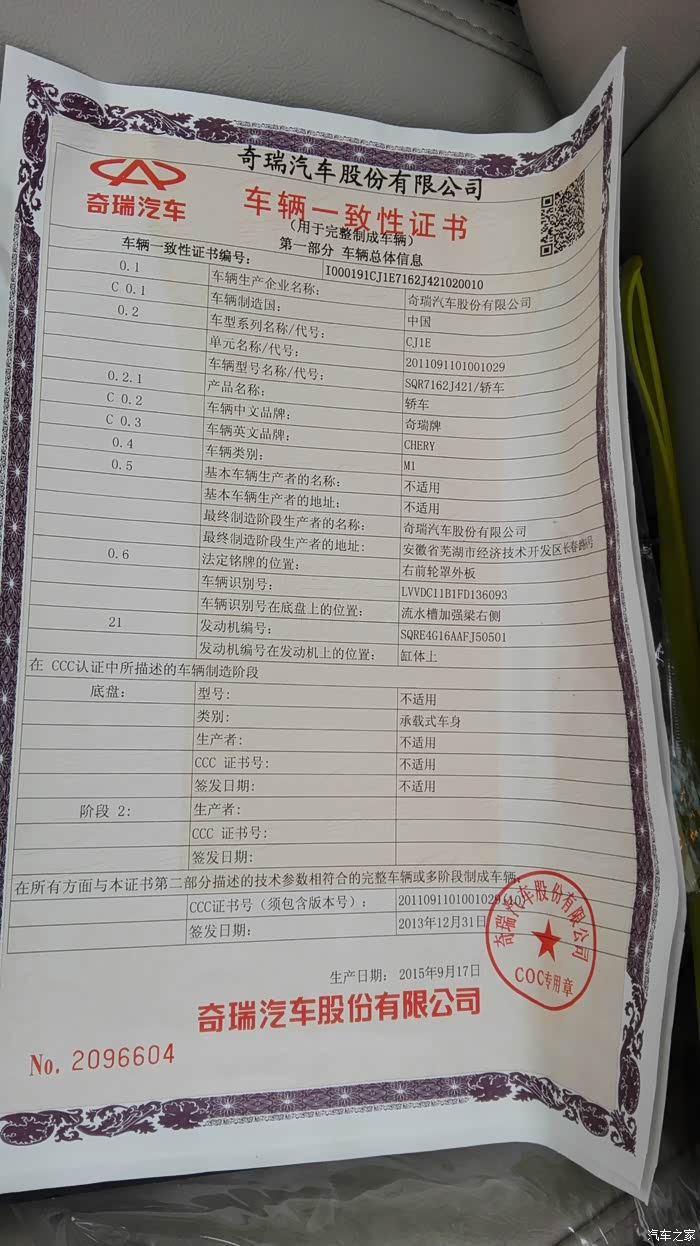 奇瑞汽车股份有限公司
奇瑞汽车
车辆一致性证书
(用于完整制成车辆)
第一部分 车辆总体信息
车辆一致性证书编号: I000191CJ1E7162J421020010
0.1 车辆生产企业名称: 奇瑞汽车股份有限公司
C 0.1 车辆制造国: 中国
0.2 车型系列名称/代号: CJ1E
单元名称/代号: 2011091101001029
车辆型号名称/代号: SQR7162J421/轿车
0.2.1 产品名称: 轿车
C 0.2 车辆中文品牌: 奇瑞牌
C 0.3 车辆英文品牌: CHERY
0.4 车辆类别: M1
0.5 基本车辆生产者的名称: 不适用
基本车辆生产者的地址: 不适用
最终制造阶段生产者的名称: 奇瑞汽车股份有限公司
最终制造阶段生产者的地址: 安徽省芜湖市经济技术开发区长春路8号
0.6 法定铭牌的位置: 右前轮罩外板
车辆识别号: LVVDC11B1FD136093
车辆识别号在底盘上的位置: 流水槽加强梁右侧
21 发动机编号: SQRE4G16AAFJ50501
发动机编号在发动机上的位置: 缸体上
在 CCC认证中所描述的车辆制造阶段
底盘: 型号: 不适用
类别: 承载式车身
生产者: 不适用
CCC 证书号: 不适用
签发日期: 不适用
阶段 2: 生产者:
CCC 证书号:
签发日期:
在所有方面与本证书第二部分描述的技术参数相符合的完整车辆或多阶段制成车辆:
CCC证书号(须包含版本号): 2011091101001029
签发日期: 2013年12月31日
奇瑞汽车股份有限公司
COC专用章
生产日期: 2015年9月17日
奇瑞汽车股份有限公司
No. 2096604
汽车之家